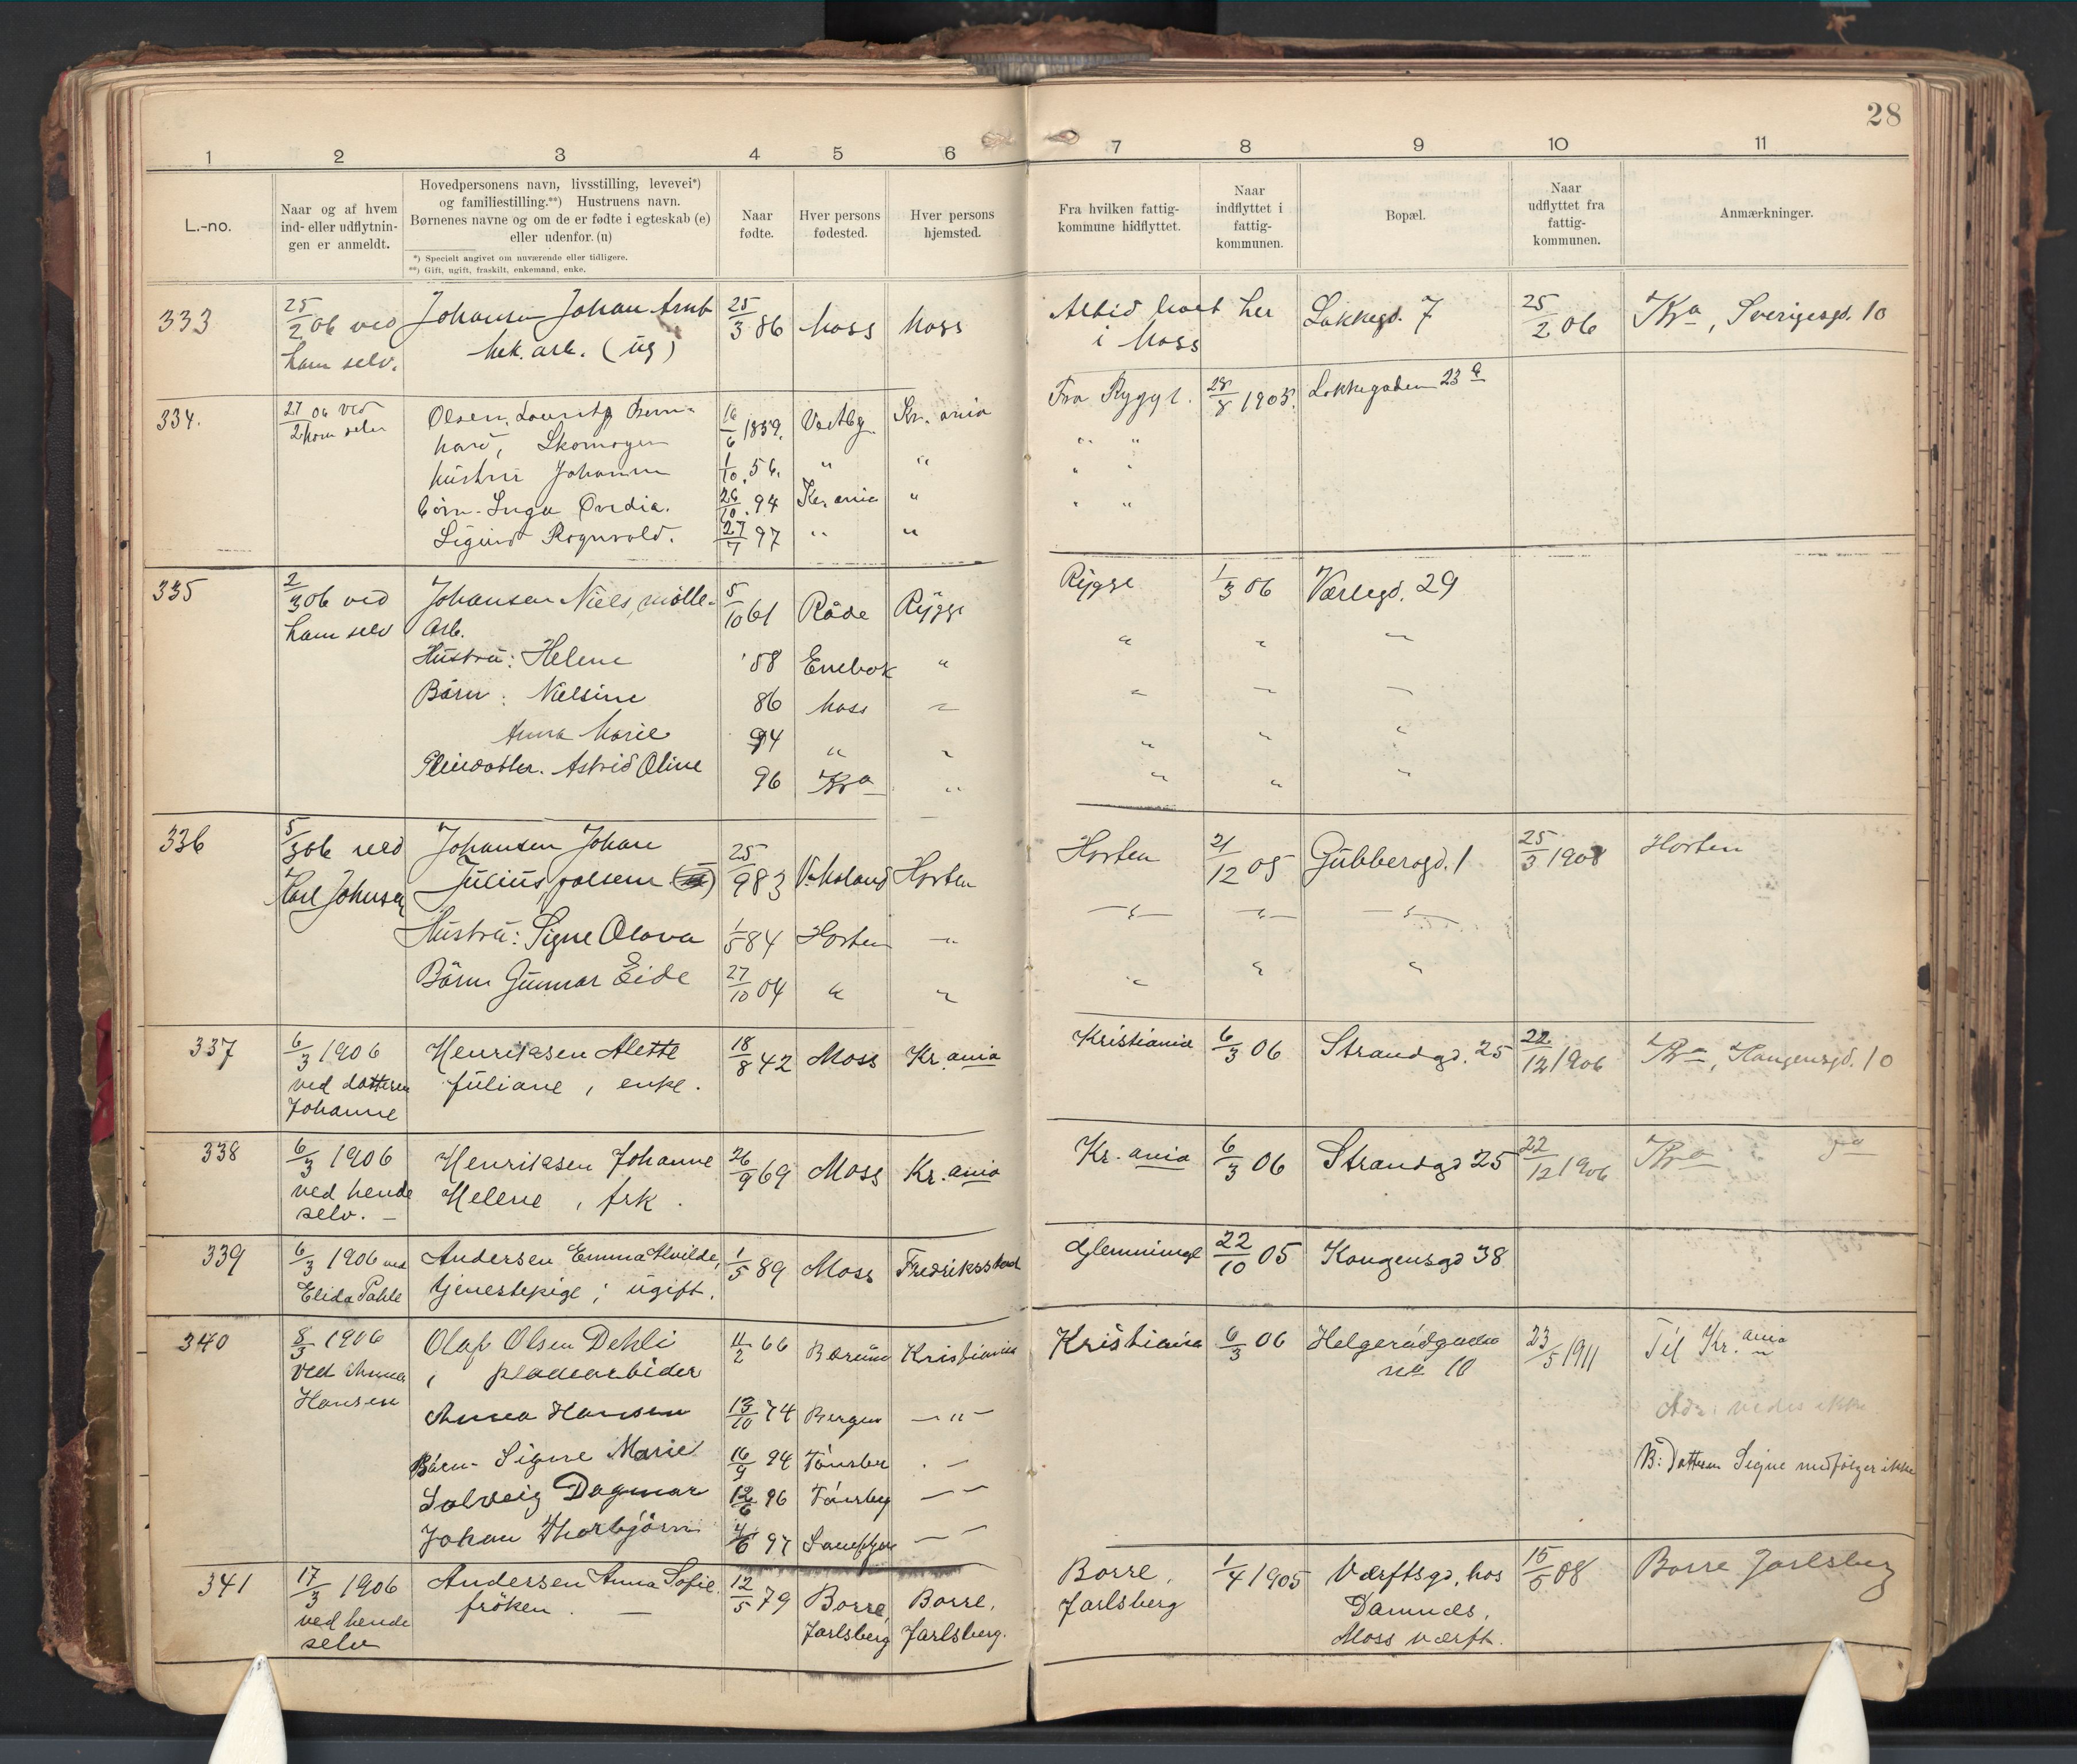 28
1 2 3 4 5 6 7 8 9 10 11
L.-no.
Naar og af hvem
ind- eller udflytnin-
gen er anmeldt.
Hovedpersonens navn, livsstilling, levevei*)
og familiestilling.**) Hustruens navn.
Børnenes navne og om de er fødte i egteskab (e)
eller udenfor. (u)
*) Specielt angivet om nuværende eller tidligere.
**) Gift, ugift, fraskilt, enkemand, enke.
Naar
fødte.
Hver persons
fødested.
Hver persons
hjemsted.
Fra hvilken fattig-
kommune hidflyttet.
Naar
indflyttet i
fattig-
kommunen.
Bopæl.
Naar
udflyttet fra
fattig-
kommunen.
Anmærkninger.
333 25/2 06 ved Johansen Johan 25/3 86 Moss Moss Altid boet her Lokkegd. 7 25/2 06 Kra, Sverigesgd. 10
ham selv. mek. arb. (ug) i Moss
334. 27/2 06 ved Olsen, Lauritz Bern- 16/6 1859. Vestby Kr. ania Fra Rygge. 28/8 1905. Lokkegaden 23 a
ham selv hard, Skomager " "
hustru Johanne 1/10. 56. " " " "
børn - Inga Ovedia. 26/10. 94 Kr. ania " " "
Sigurd Rognvald. 27/7 97 " "
335 2/3 06 ved Johansen Niels, mølle- 5/10 61 Råde Rygge Rygge 1/3 06 Værlegd. 29
ham selv Arb.
Hustru: Helene 58 Enebak " " " "
Børn: Nielsine 86 Moss " " " "
Anna Marie 94 " " " " "
Pleiedatter. Astrid Oline 96 Kra " " " "
336 5/3 06 ved Johansen Johan 25/9 83 Horten Horten 21/12 05 Gubberogd. 1 25/3 1908 Horten
Karl Johnsen Julius,
Hustru: Signe Olava 1/5 84 Horten " " " "
Børn Gunnar Eide 27/10 04 " " " " "
337 6/3 1906 Henriksen Alette 18/8 42 Moss Kr. ania Kristiania 6/3 06 Strandgd. 25 22/12 1906 Kra, Haugensgd. 10
ved datteren Juliane, enke.
Johanne
338 6/3 1906 Henriksen Johanne 26/9 69 Moss Kr. ania Kr. ania 6/3 06 Strandgd 25 22/12 1906 Kra
ved hende Helene, frk.
selv. -
339 6/3 1906 ved Andersen Emma Alvilde, 1/5 89 Moss Fredriksstad Glemminge 22/10 05 Kongensgd 38
Elida Pahle tjenestepige; ugift.
340 8/3 1906 Olaf Olsen Dehli 11/2 66 Bærum Kristiania Kristiania 6/3 06 Helgerødgaden 23/5 1911 Til Kr. ania
ved Anna , pladearbider no 10
Hansen Anna Hansen 13/10 74 Bergen - " - Adr. vedes ikke.
Børn - Signe Marie 16/9 94 Tønsber - B: Datteren Signe medfølger ikke
Solveig Dagmar 12/6 96 Tønsberg - " -
Johan Thorbjørn 4/6 97 Sanefjor - " -
341 17/3 1906 Andersen Anna Sofie. 12/5 79 Borre, Borre. Borre, 1/4 1905 Værftsgd, hos 15/5 08 Borre Jarlsberg
ved hende frøken. Jarlsberg Jarlsberg. Jarlsberg Damnæs,
selv Moss værft.